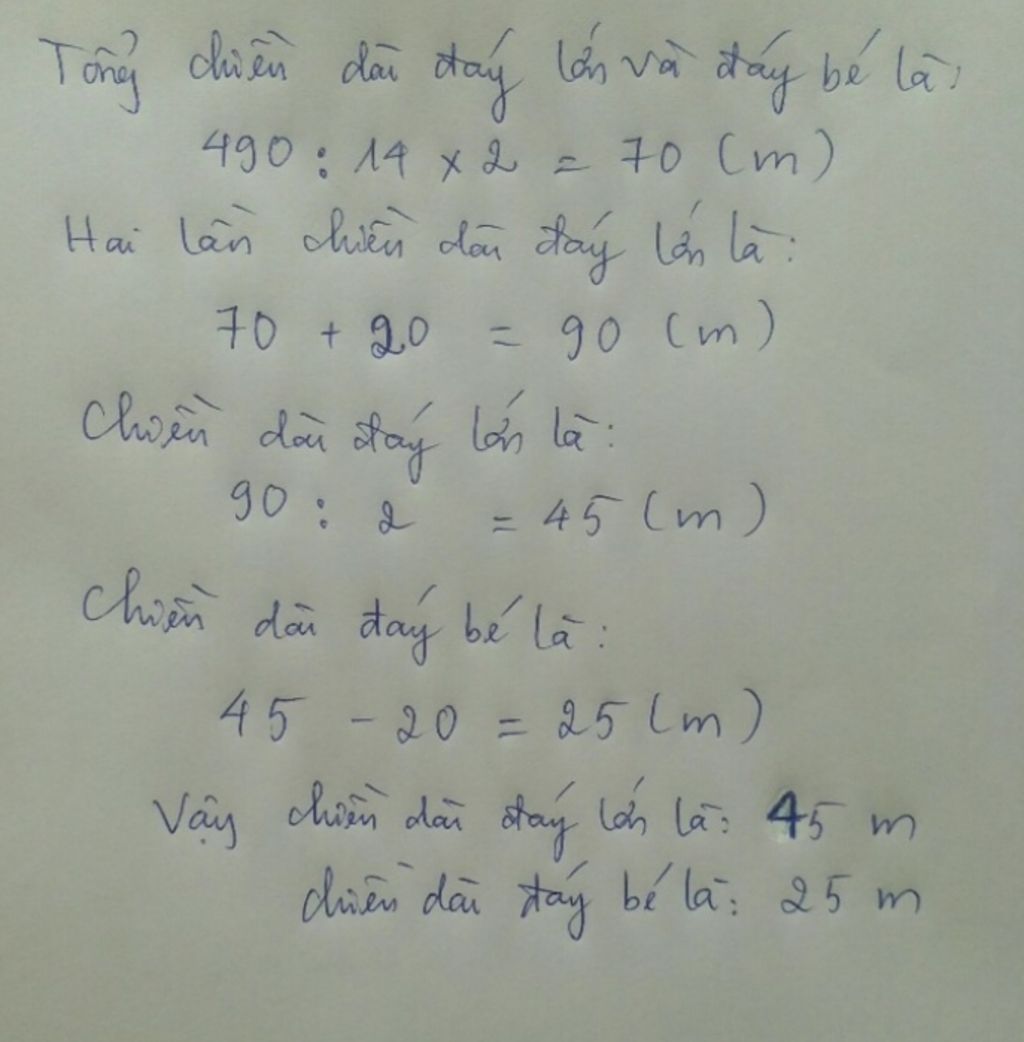 Tổng chiều dài đáy lớn và đáy bé là:
490 : 14 x 2 = 70 (m)
Hai lần chiều dài đáy lớn là:
70 + 20 = 90 (m)
Chiều dài đáy lớn là:
90 : 2 = 45 (m)
Chiều dài đáy bé là:
45 - 20 = 25 (m)
Vậy chiều dài đáy lớn là: 45 m
chiều dài đáy bé là: 25 m